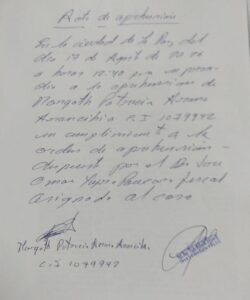 Acta de aprehensión
En la ciudad de La Paz, del
día 17 de Agosto de
a horas 12:40 p.m. se proce
dió a la aprehensión de
Margoth Patricia
Arancibia C.I 1079992
en cumplimiento a la
orden de aprehensión
por el Dr. Jose
Omar Fiscal
asignado al caso
Margoth Patricia Arancibia
C.I 1079992